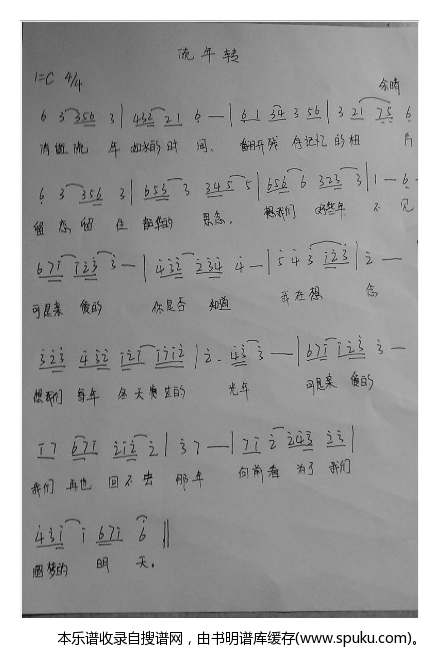 流年转
1=C 4/4
余晴
6 3 356 3 | 432 21 6 — | 61 34 3 56 | 3 21 75 6
流 年 的时 间. 翻开残 存记忆 的相 片
6 3 356 3 | 653 3 345 5 | 656 6 323 3 | 1 — 6 —
留 恋 留 住 的 思念. 想我们 好些年 不 见
671 123 3 — | 432 234 4 — | 5 4 3 123 | 2 —
可是亲 爱的 你是否 知道 我在想 念
323 432 121 1712 | 2. 43 3 — | 671 123 3 —
想我们 每年 冬天 的 光年 可是亲 爱的
17 671 212 2 | 3 7 — | 71 2 243 23 |
我们 再也 回不去 那年 向前看 为了 我们
431 1 671 6 ‖
圆梦的 明 天.
本乐谱收录自搜谱网，由书明谱库缓存(www.spuku.com)。